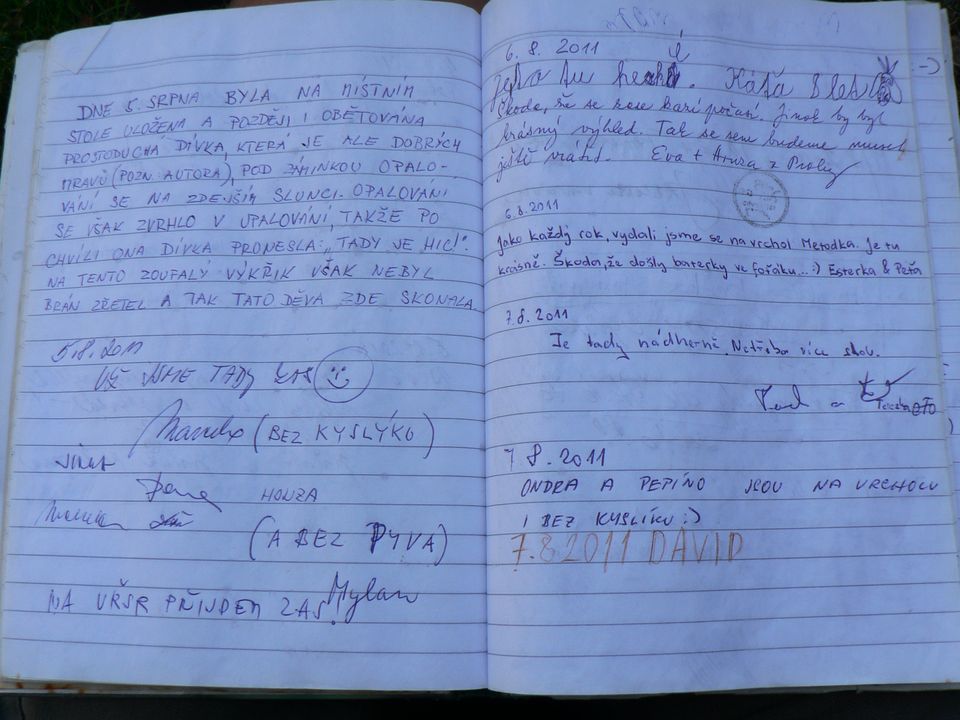 DNE 5. SRPNA BYLA NA MÍSTNÍM
STOLE ULOŽENA A POZDĚJI I OBĚTOVÁNA
PROSTODUCHÁ DÍVKA, KTERÁ JE ALE DOBRÝCH
MRAVŮ (POZN. AUTORA), POD ZÁMINKOU OPALO-
VÁNÍ SE NA ZDEJŠÍM SLUNCI. OPALOVÁNÍ
SE VŠAK ZVRHLO V UPALOVÁNÍ, TAKŽE PO
CHVÍLI ONA DÍVKA PRONESLA: „TADY JE HIC!"
NA TENTO ZOUFALÝ VÝKŘIK VŠAK NEBYL
BRÁN ZŘETEL A TAK TATO DĚVA ZDE SKONALA
5.8. 2011
UŽ JSME TADY ZAS
(BEZ KYSLÝKU)
HONZA
(A BEZ PYVA)
NA VŘSR PŘIJDEM ZAS!
Mylan
6. 8. 2011
Je tu Káťa 8 let
Škoda, že se kazí počasí. Jinak by byl
krásný výhled. Tak se sem budeme muset
ještě vrátit. Eva + z Prahy
6.8.2011
Jako každý rok, vydali jsme se na vrchol Metodka. Je tu
krásně. Škoda, že došly baterky ve foťáku...:) Esterka & Péťa
7.8.2011
Je tady nádherně. Netřeba více slov.
a Terezka
7.8.2011
ONDRA A PEPÍNO JSOU NA VRCHOLU
I BEZ KYSLÍKU :)
7.8.2011 DAVID